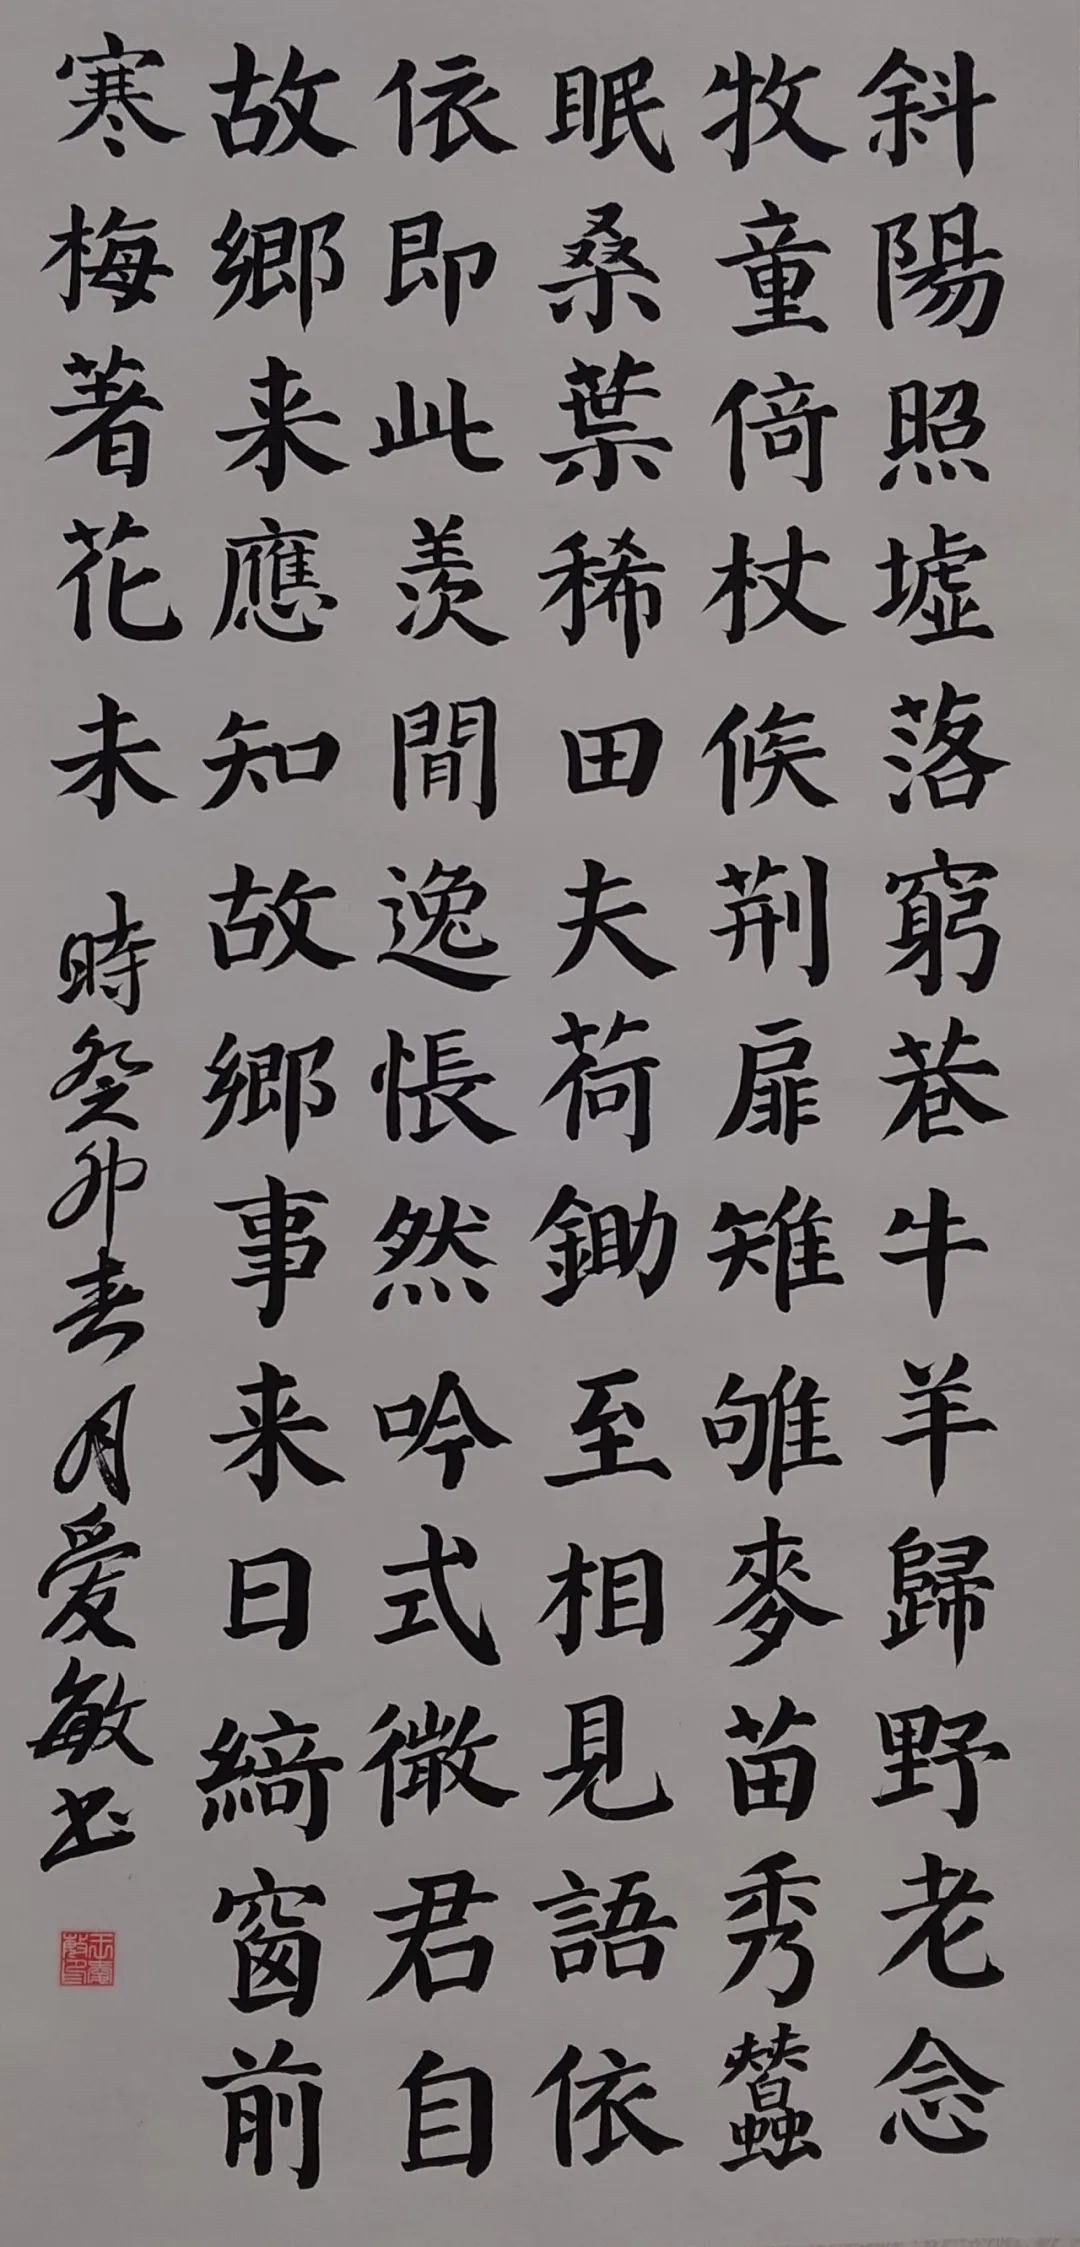 斜陽照墟落窮巷牛羊歸野老念
牧童倚杖候荆扉雉雊麥苗秀蠶
眠桑葉稀田夫荷鋤至相見語依
依即此羡閒逸悵然吟式微君自
故鄉来應知故鄉事来日綺窗前
寒梅著花未
時癸卯春月爱敏书